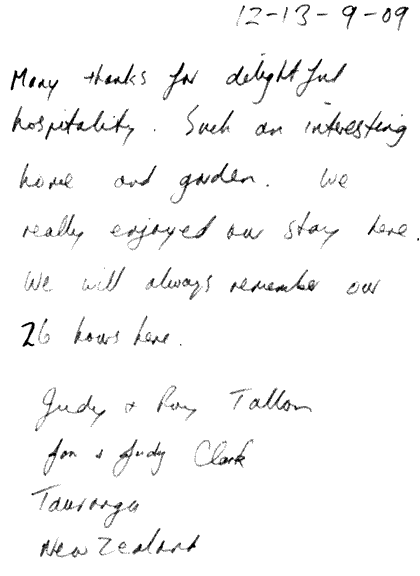 12-13-9-09
Many thanks for delightful
hospitality. Such an interesting
home and garden. We
really enjoyed our stay here.
We will always remember our
26 hours here.
Judy + Roy Tallon
Jon & Judy Clark
Tauranga
New Zealand